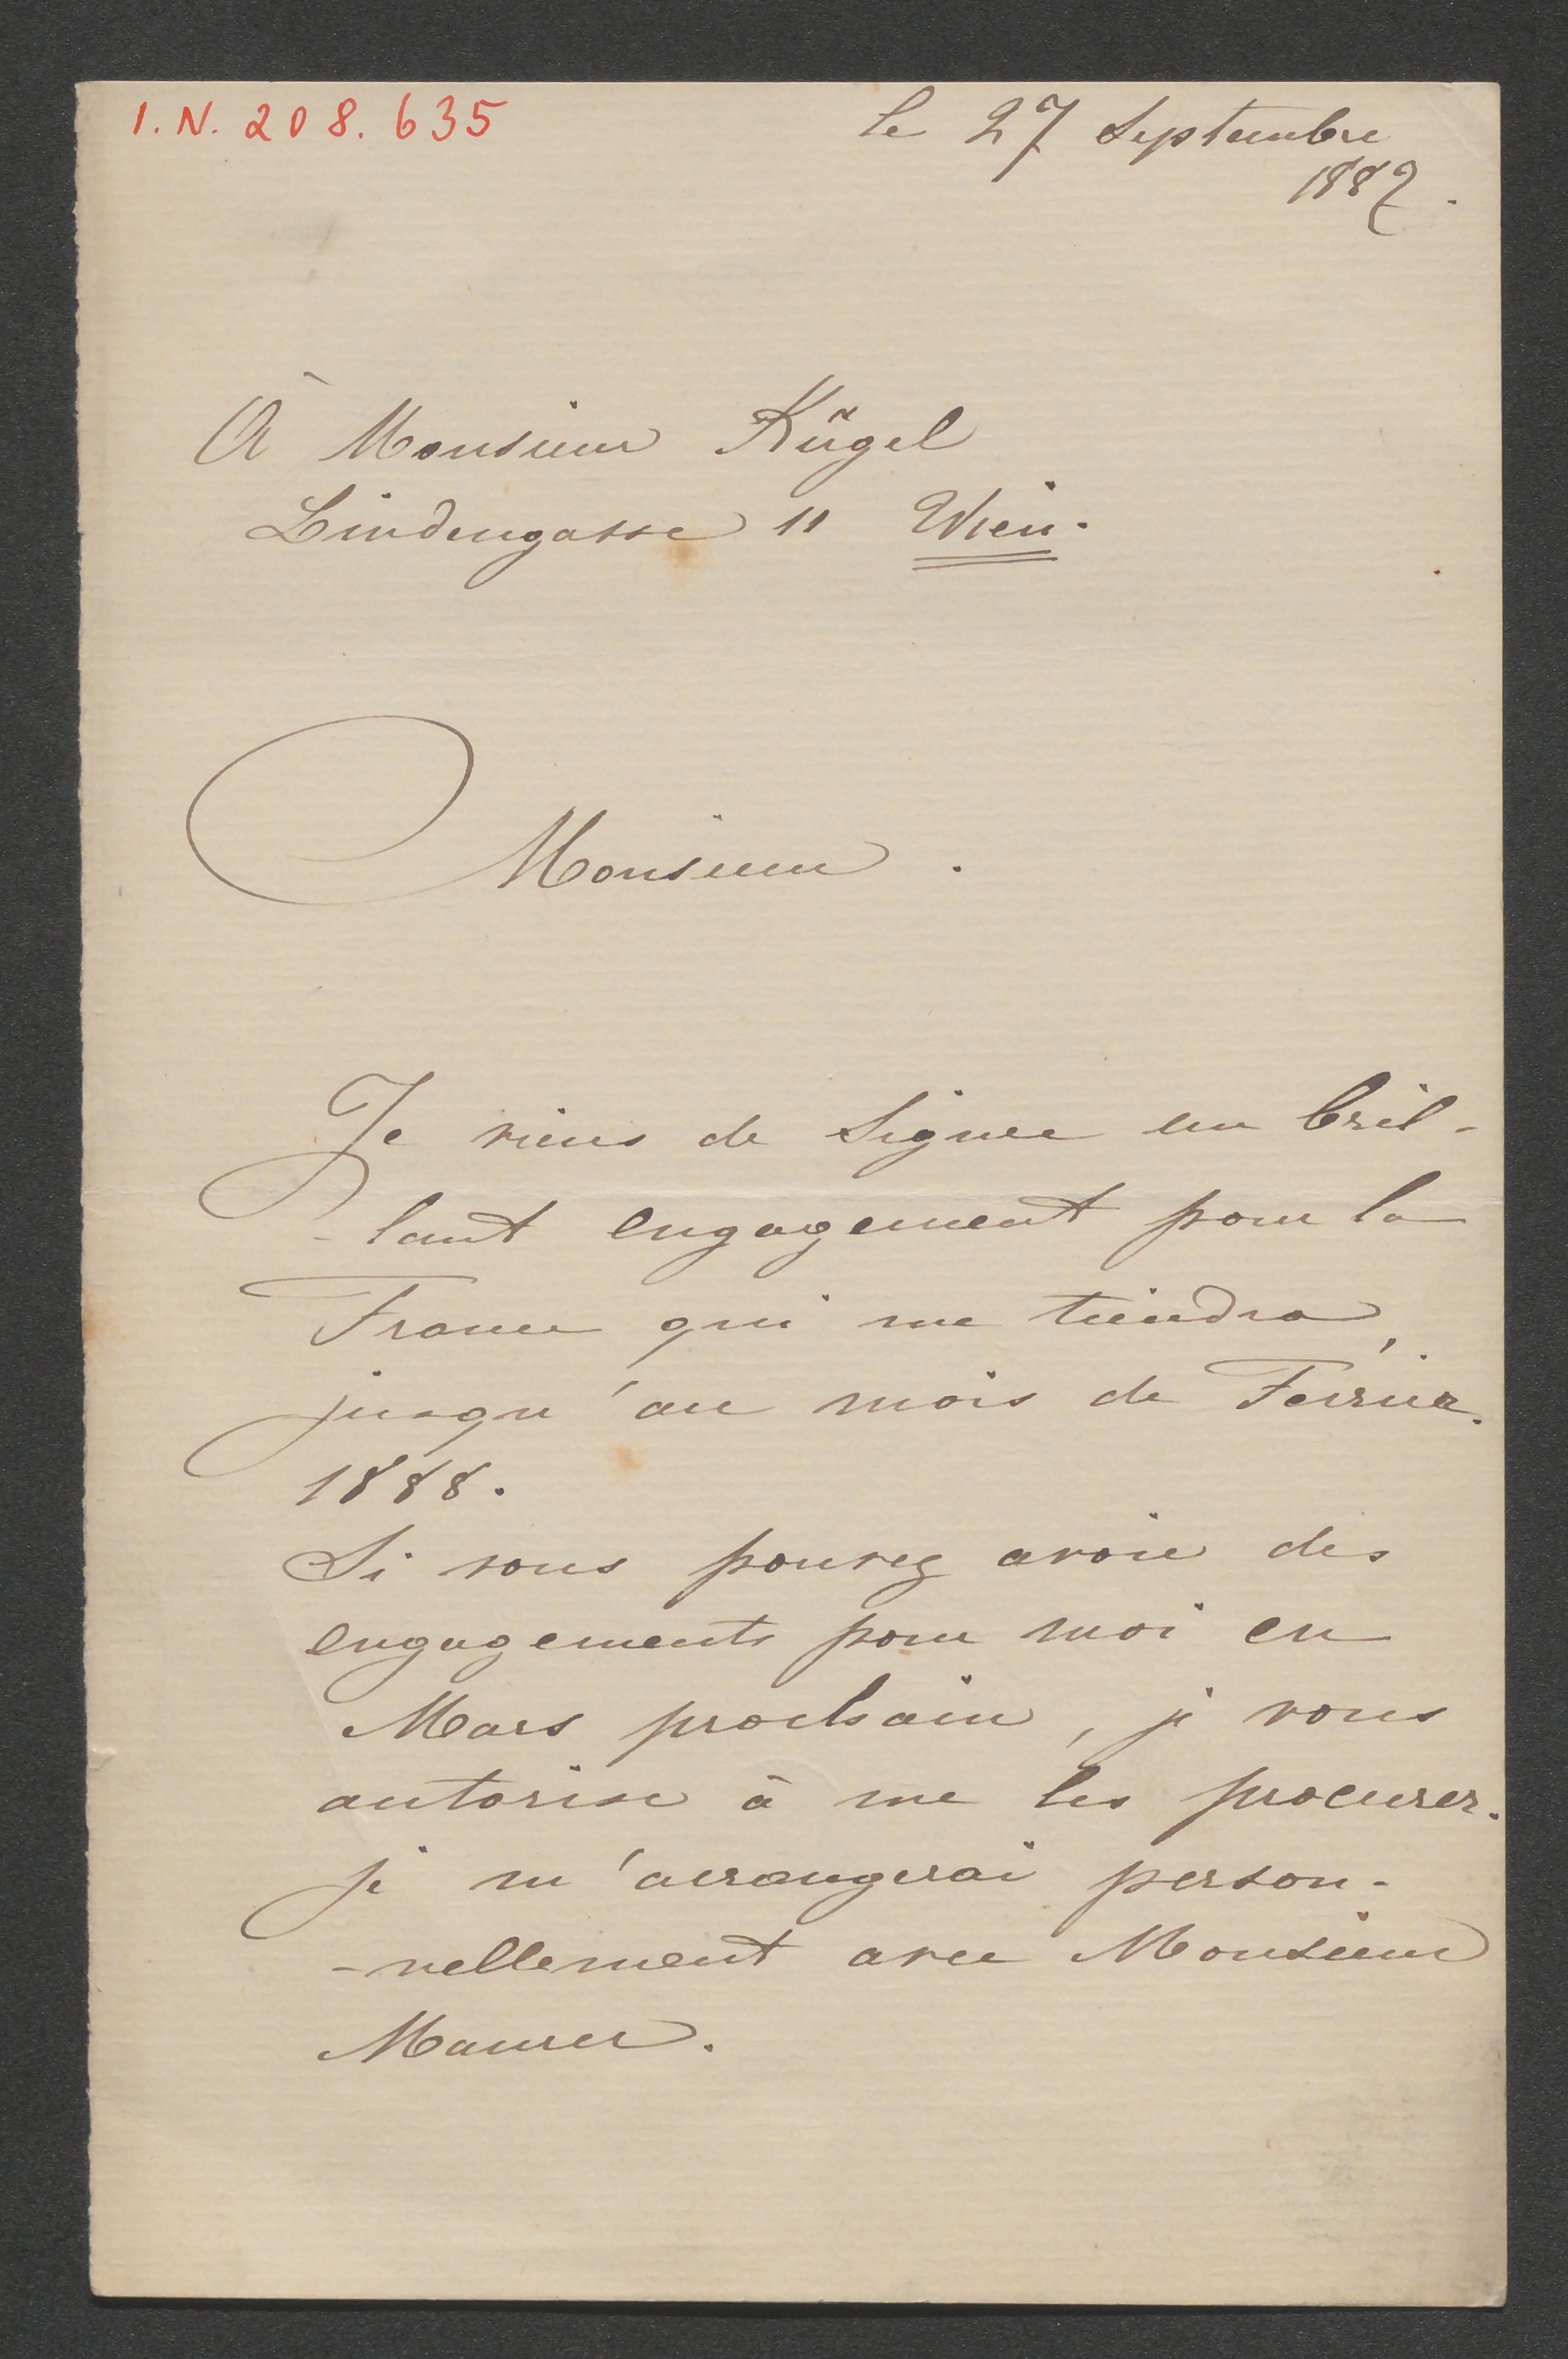 I.N. 208.635
le 27 Septembre
1887.
À Monsieur Kügel
Lindengasse 11 Wien.
Monsieur.
Je viens de Signer un bril-
-lant engagement pour la
France qui me tiendra,
jusqu'au mois de Février.
1888.
Si vous pouvez avoir des
engagements pour moi en
Mars prochain, je vous
autorise à me les procurer.
je m'arrangerai person-
-nellement avec Monsieur
Maurer.